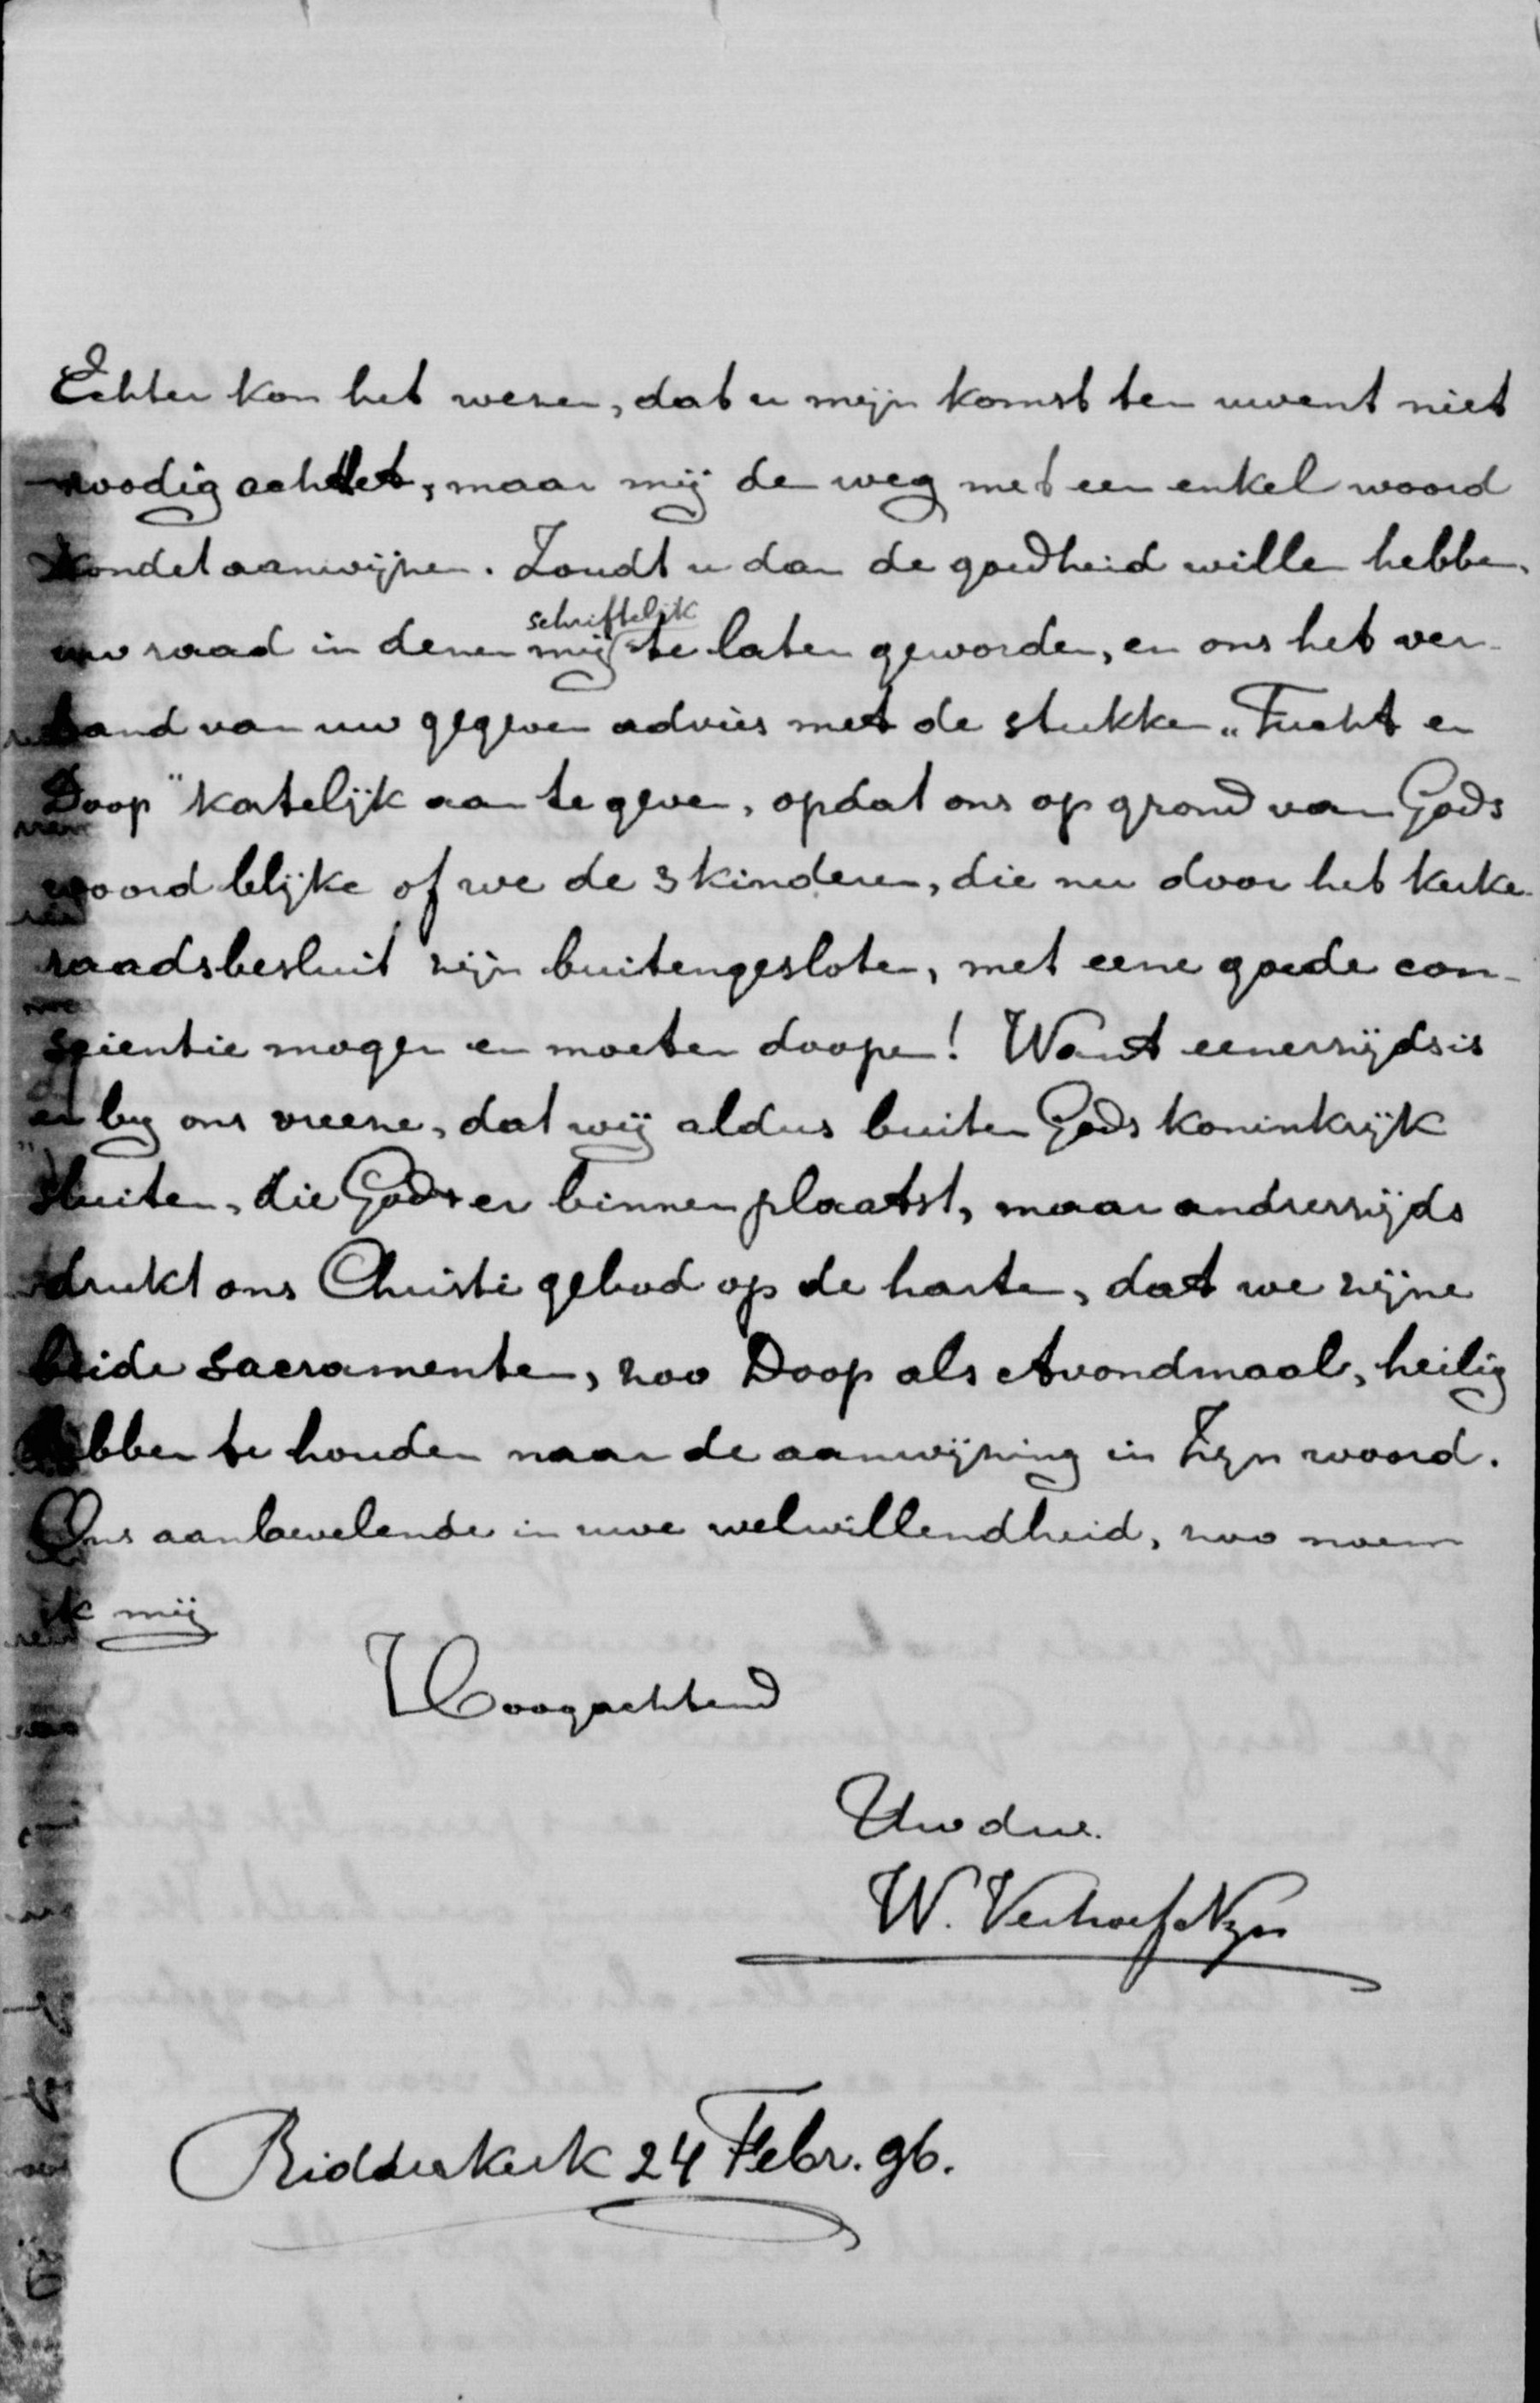 Echter kon het wezen, dat u mijn komst ten uwent niet
noodig achttet, maar mij den weg met een enkel woord
kondet aanwijzen. Zoudt u dan de goedheid willen hebben,
uw raad in dezen mij schriftelijk te laten geworden, en ons het ver-
band van uw gegeven advies met de stukken „Tucht en
Doop" kortelijk aan te geven, opdat ons op grond van Gods
woord blijke of we de 3 kinderen, die nu door het kerke-
raadsbesluit zijn buitengesloten, met eene goede con-
scientie mogen en moeten doopen! Want eenerzijds is
er bij ons vreeze, dat wij aldus buiten Gods koninkrijk
sluiten, die God er binnen plaatst, maar anderzijds
drukt ons Christi gebod op de harten, dat we zijne
beide sacramenten, zoo Doop als Avondmaal, heilig
hebben te houden naar de aanwijzing in Zijn woord.
Ons aanbevelende in uwe welwillendheid, zoo noem
ik mij
Hoogachtend
Uw dw.
W. Verhoef Nzn
Ridderkerk 24 Febr. 96.